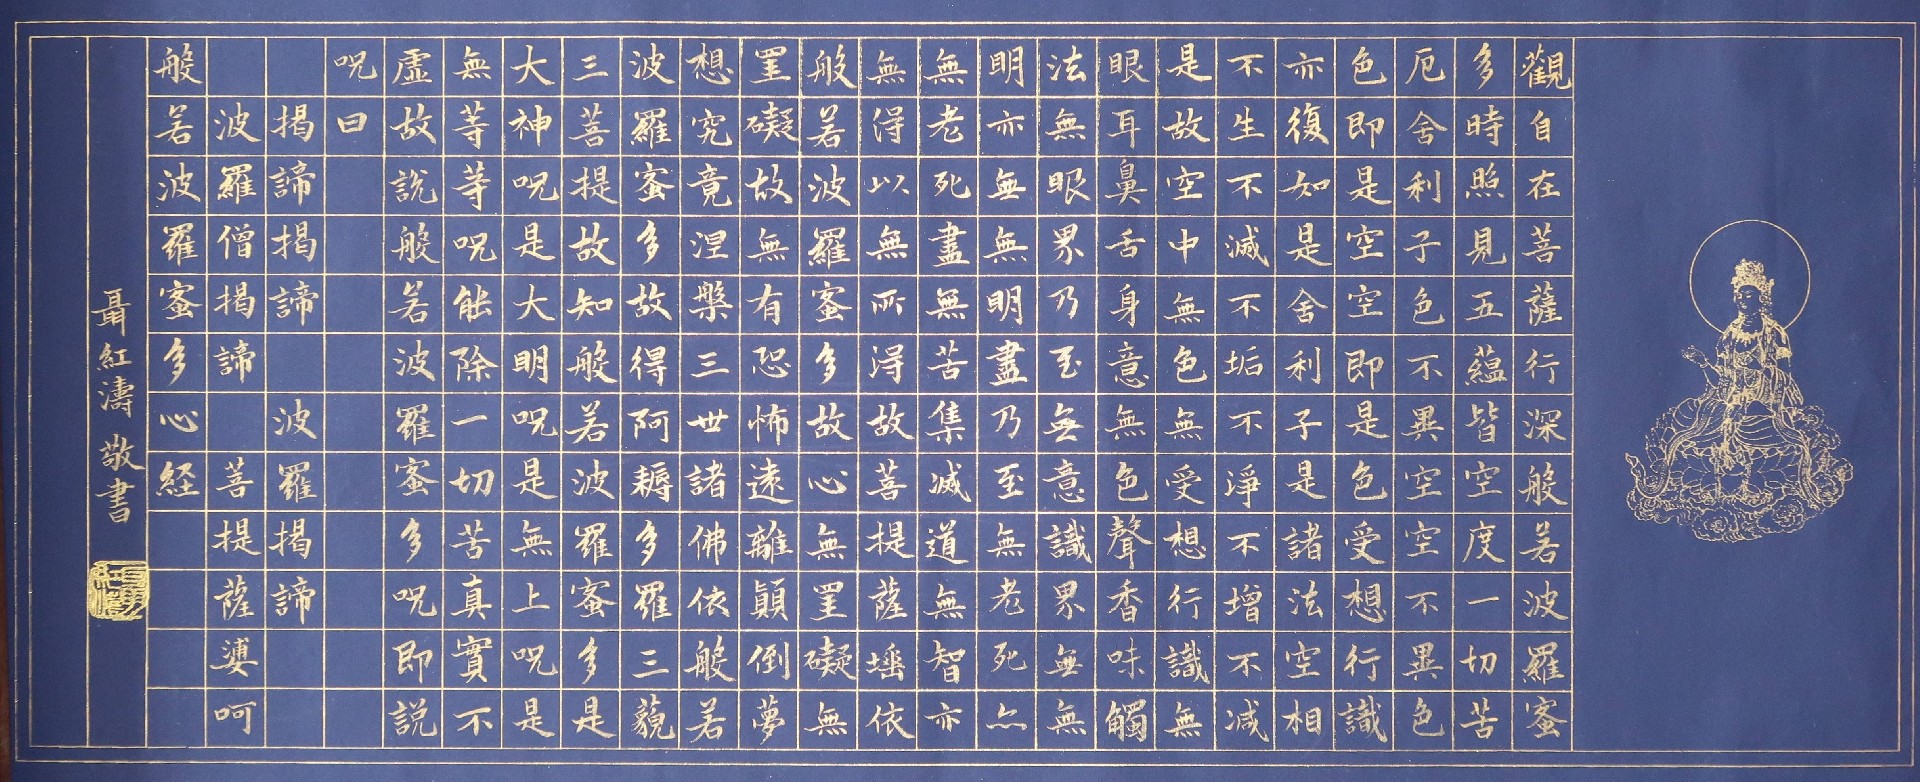 觀自在菩薩行深般若波羅蜜
多時照見五蘊皆空度一切苦
厄舍利子色不異空空不異色
色即是空空即是色受想行識
亦復如是舍利子是諸法空相
不生不滅不垢不淨不增不減
是故空中無色無受想行識無
眼耳鼻舌身意無色聲香味觸
法無眼界乃至無意識界無無
明亦無無明盡乃至無老死亦
無老死盡無苦集滅道無智亦
無得以無所得故菩提薩埵依
般若波羅蜜多故心無罣礙無
罣礙故無有恐怖遠離顛倒夢
想究竟涅槃三世諸佛依般若
波羅蜜多故得阿耨多羅三藐
三菩提故知般若波羅蜜多是
大神呪是大明呪是無上呪是
無等等呪能除一切苦真實不
虛故說般若波羅蜜多呪即説
呪曰
揭諦揭諦 波羅揭諦
波羅僧揭諦 菩提薩婆呵
般若波羅蜜多心経
聶紅濤 敬書